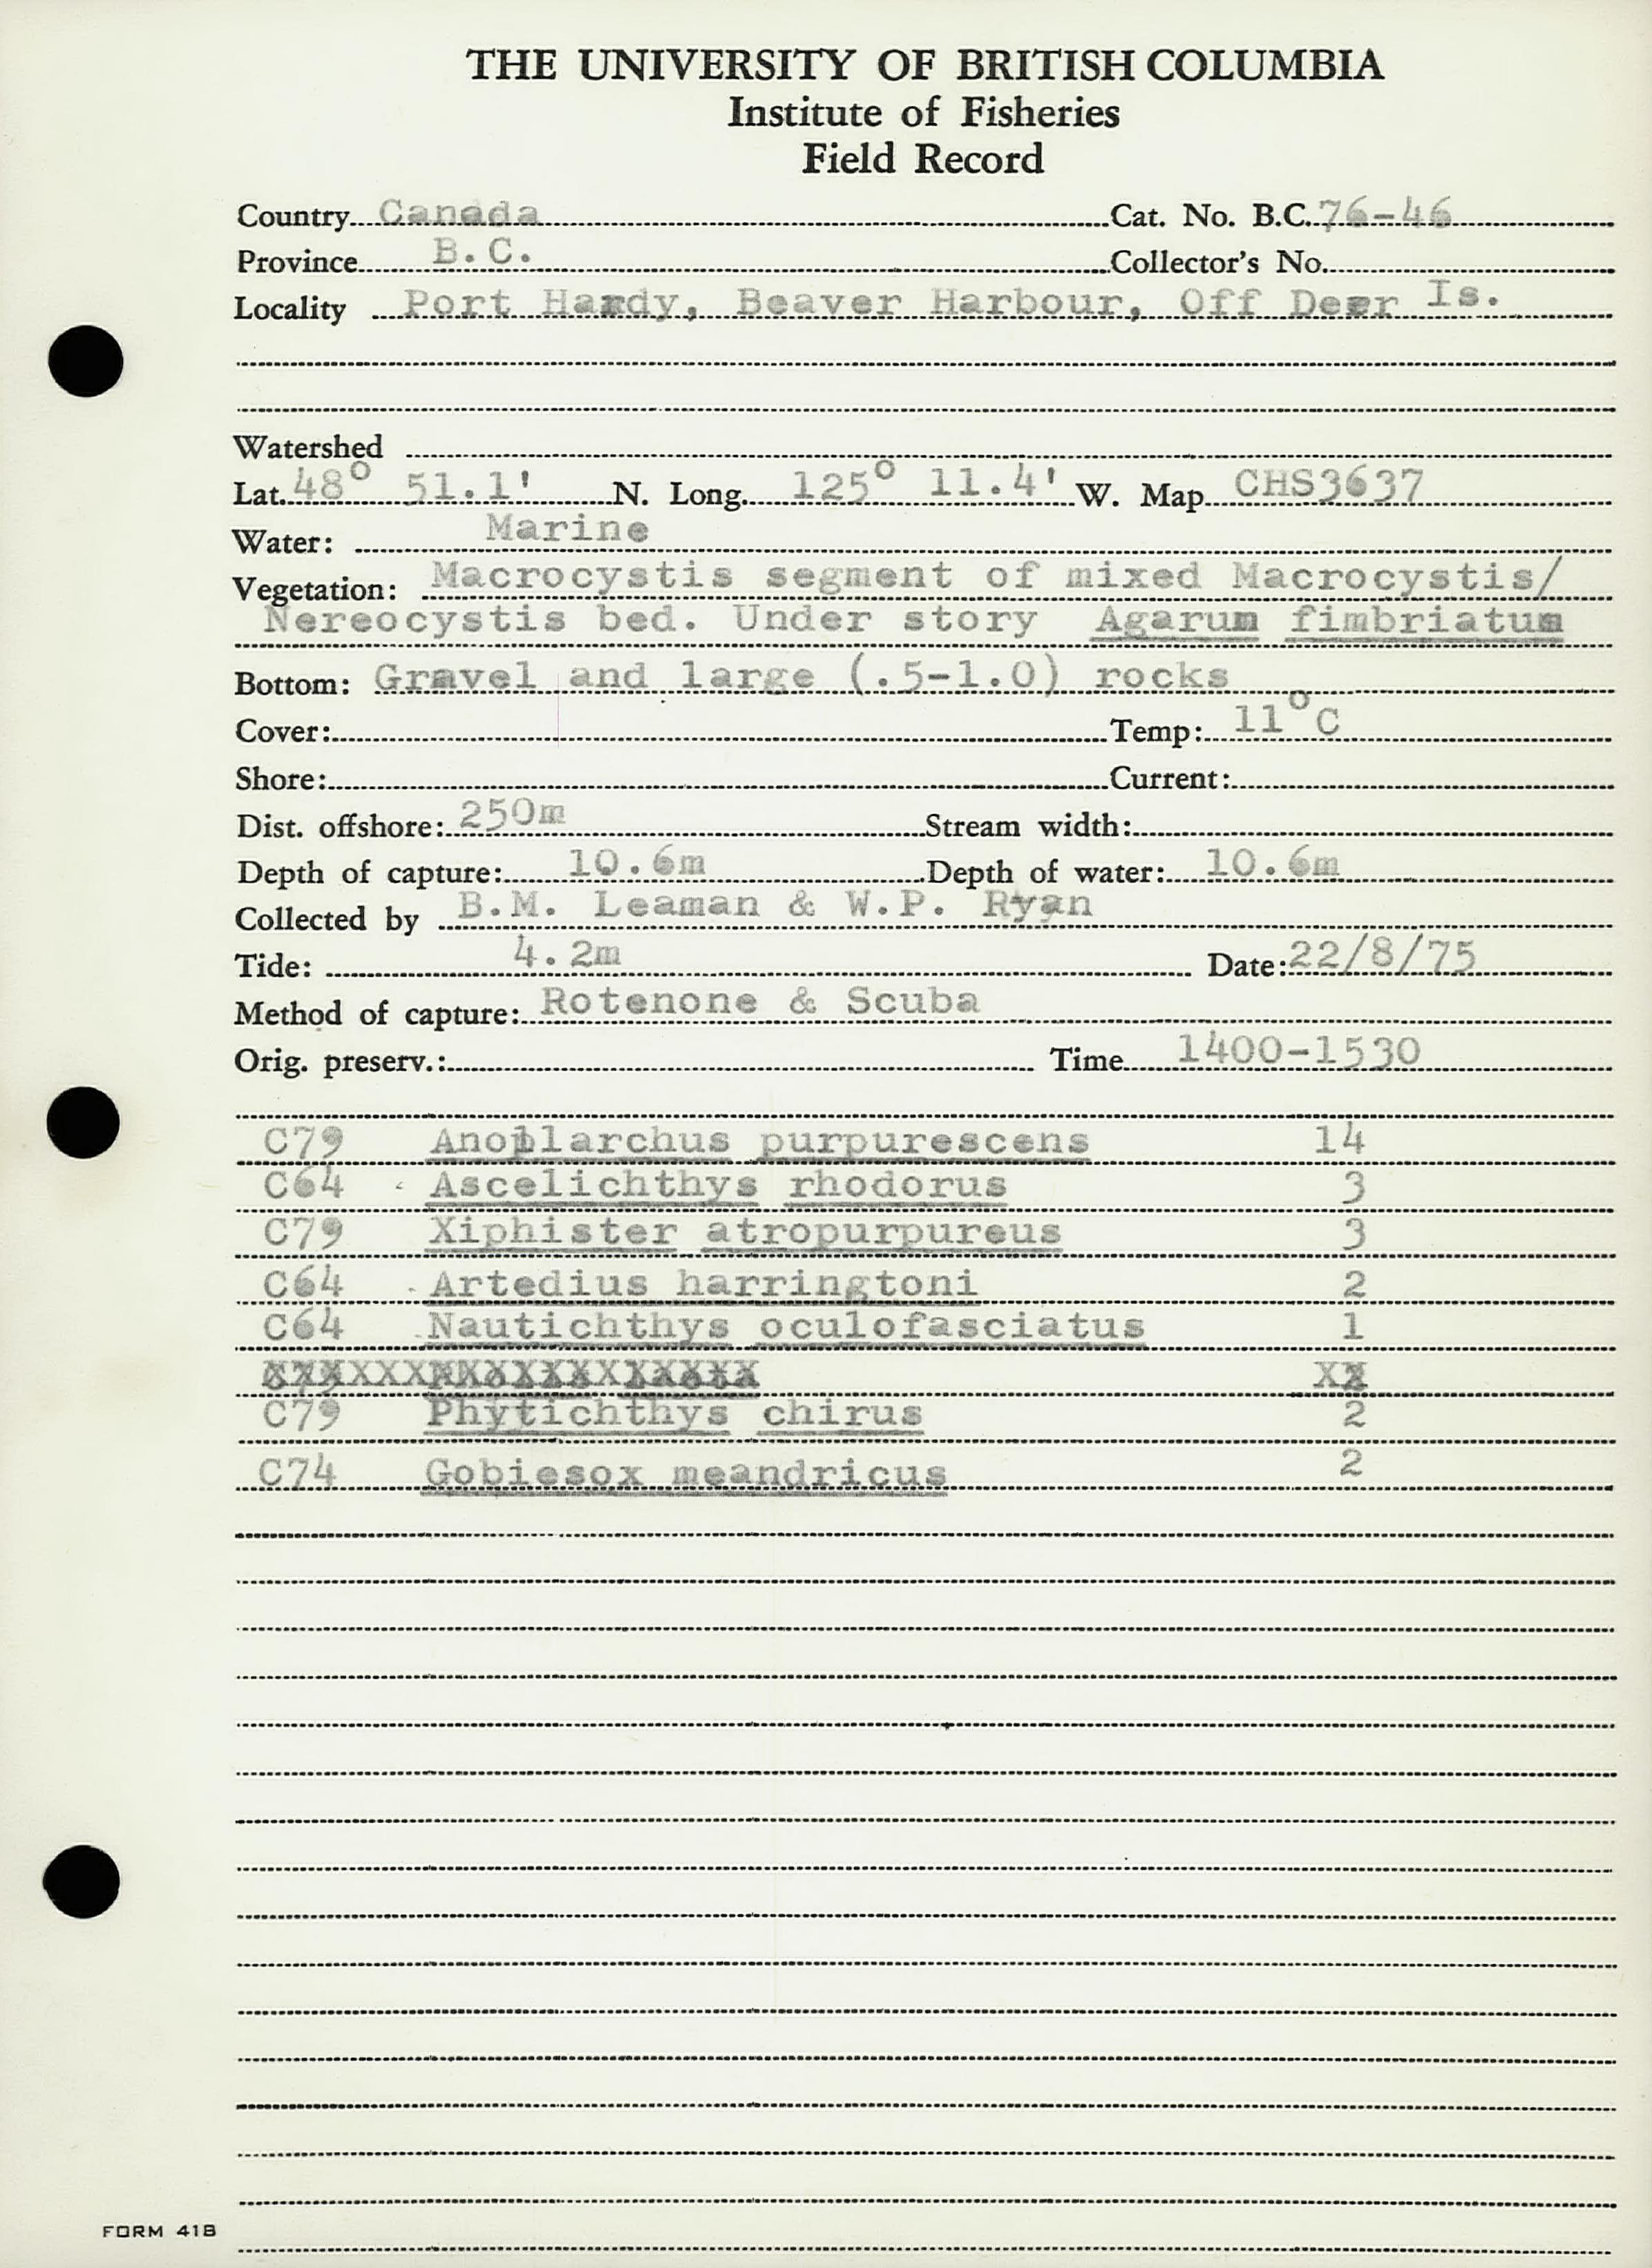 THE UNIVERSITY OF BRITISH COLUMBIA
Institute of Fisheries
Field Record
Country Canada Cat. No. B.C. 76-46
Province B.C. Collector's No.
Locality Port Hardy, Beaver Harbour, Off Deer Is.
Watershed
Lat. 48° 51.1' N. Long. 125° 11.4' W. Map CHS3637
Water: Marine
Vegetation: Macrocystis segment of mixed Macrocystis/
Nereocystis bed. Under story Agarum fimbriatum
Bottom: Gravel and large (.5-1.0) rocks
Cover: Temp: 11°C
Shore: Current:
Dist. offshore: 250m Stream width:
Depth of capture: 10.6m Depth of water: 10.6m
Collected by B.M. Leaman & W.P. Ryan
Tide: 4.2m Date: 22/8/75
Method of capture: Rotenone & Scuba
Orig. preserv.: Time 1400-1530
C79 Anoplarchus purpurescens 14
C64 Ascelichthys rhodorus 3
C79 Xiphister atropurpureus 3
C64 Artedius harringtoni 2
C64 Nautichthys oculofasciatus 1
C79 Phytichthys chirus 2
C74 Gobiesox meandricus 2
FORM 41B